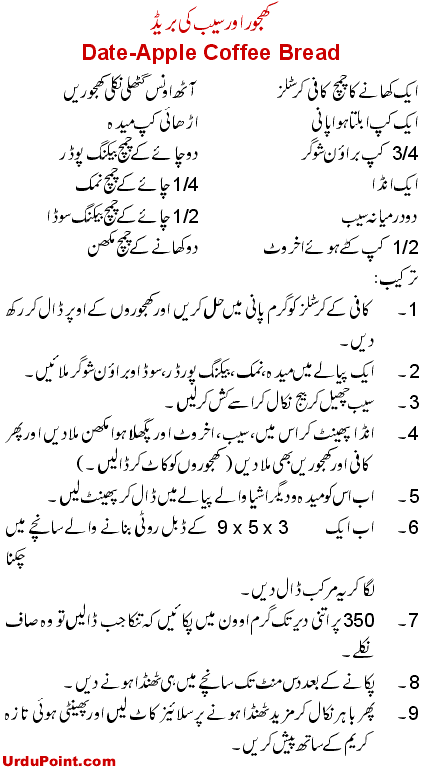 کھجور اور سیب کی بریڈ
Date-Apple Coffee Bread
ایک کھانے کا چمچ کافی کرسٹلز آٹھ اونس گٹھلی نکلی کھجوریں
ایک کپ ابلتا ہوا پانی اڑھائی کپ میدہ
3/4 کپ براؤن شوگر دو چائے کے چمچ بیکنگ پوڈر
ایک انڈا 1/4 چائے کے چمچ نمک
دو درمیانہ سیب 1/2 چائے کے چمچ بیکنگ سوڈا
1/2 کپ کٹے ہوئے اخروٹ دو کھانے کے چمچ مکھن
ترکیب:
1۔ کافی کے کرسٹلز کو گرم پانی میں حل کریں اور کھجوروں کے اوپر ڈال کر رکھ
دیں۔
2۔ ایک پیالے میں میدہ، نمک، بیکنگ پورڈر، سوڈا اور براؤن شوگر ملائیں۔
3۔ سیب چھیل کر بیج نکال کر اسے کش کر لیں۔
4۔ انڈا پھینٹ کر اس میں، سیب، اخروٹ اور پگھلا ہوا مکھن ملا دیں اور پھر
کافی اور کھجوریں بھی ملا دیں (کھجوروں کو کاٹ کر ڈالیں۔)
5۔ اب اس کو میدہ و دیگر اشیا والے پیالے میں ڈال کر پھینٹ لیں۔
6۔ اب ایک 9 x 5 x 3 کے ڈبل روٹی بنانے والے سانچے میں
چکنا
لگا کر یہ مرکب ڈال دیں۔
7۔ 350 پر اتنی دیر تک گرم اوون میں پکائیں کہ تنکا جب ڈالیں تو وہ صاف
نکلے۔
8۔ پکانے کے بعد دس منٹ تک سانچے میں ہی ٹھنڈا ہونے دیں۔
9۔ پھر باہر نکال کر مزید ٹھنڈا ہونے پر سلائیز کاٹ لیں اور پھینٹی ہوئی تازہ
کریم کے ساتھ پیش کریں۔
UrduPoint.com